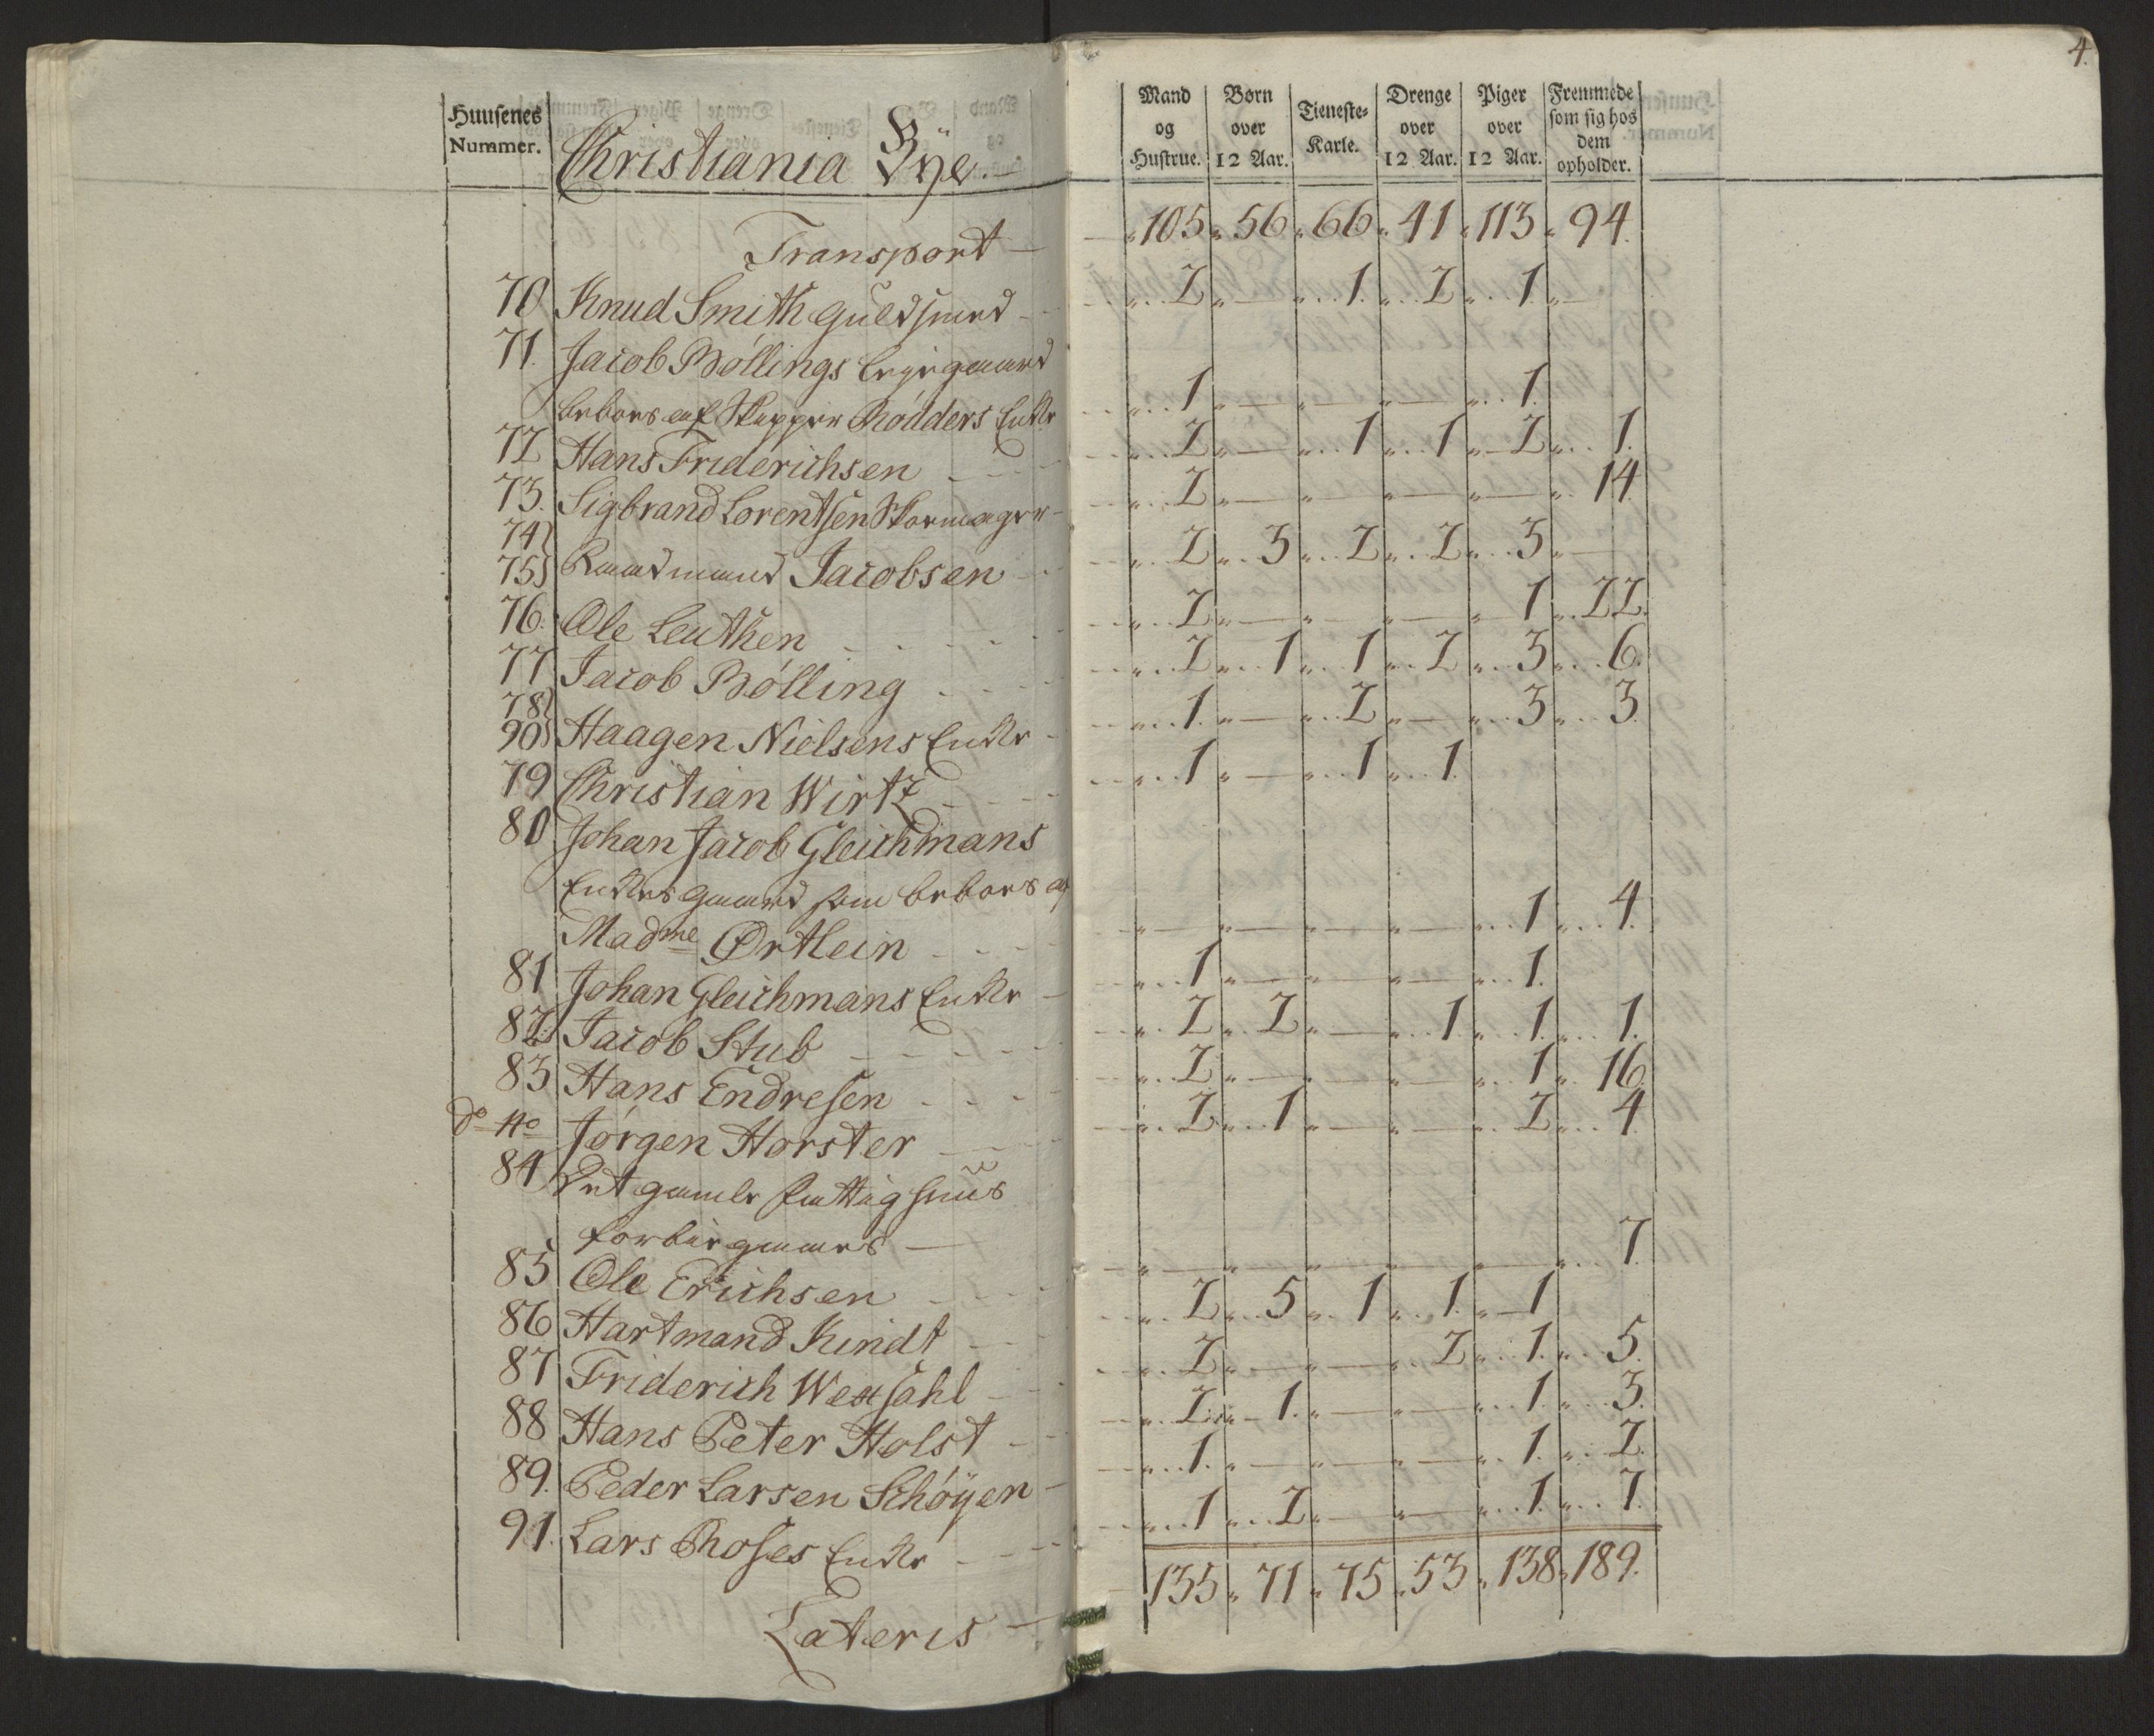 4.
Huusenes Nummer. Christiania Bÿe. Mand og Hustrue. Børn over 12 Aar. Tieneste-Karle. Drenge over 12 Aar. Piger over 12 Aar. Fremmede som sig hos dem opholder.
Transport — 105. 56. 66. 41. 113. 94.
70 Knud Smith Guldsmed 2 — 1. 2 1. —
71. Jacob Bøllings Leÿegaard
beboes af Skipper Rødders Enke 1 — — — 1.
72 Hans Friderichsen 2 — 1 1 2 1.
73. Sigbrand Lorentsen Skomager 2 — — — — 14.
74 75 Raadmand Jacobsen 2 3 2 2 3 —
76. Ole Leuthen 2 — — — 1 22.
77 Jacob Bølling 2 1 1 2 3 6.
78 90 Haagen Nielsens Enke 1. — 2 — 3 3.
79 Christian Wirtz 1 — 1 1.
80 Johan Jacob Gleichmans
Enkes Gaard som beboes af
Madme Ørtlein — — — — 1 4.
81 Johan Gleichmans Enke 1 — — — 1.
82. Jacob Stub 2 2 — 1 1. 1.
83 Hans Endresen 2 — — — 1 16.
do No Jørgen Horster 2 1 — — 2 4.
84 Det gamle Fattighuus
forbiegaaes — — — — — — 7.
85 Ole Erichsen 2 5 1 1. 1
86 Hartmand Kindt 2 — — 2 1. 5.
87 Friderich Westfahl 2 1. — — 1. 3.
88 Hans Peter Holst 1. — — — 1. 2.
89. Peder Larsen Schøÿen 1 2 — — 1. 7.
91. Lars Roses Enke
Lateris — 135. 71. 75. 53. 138. 189.